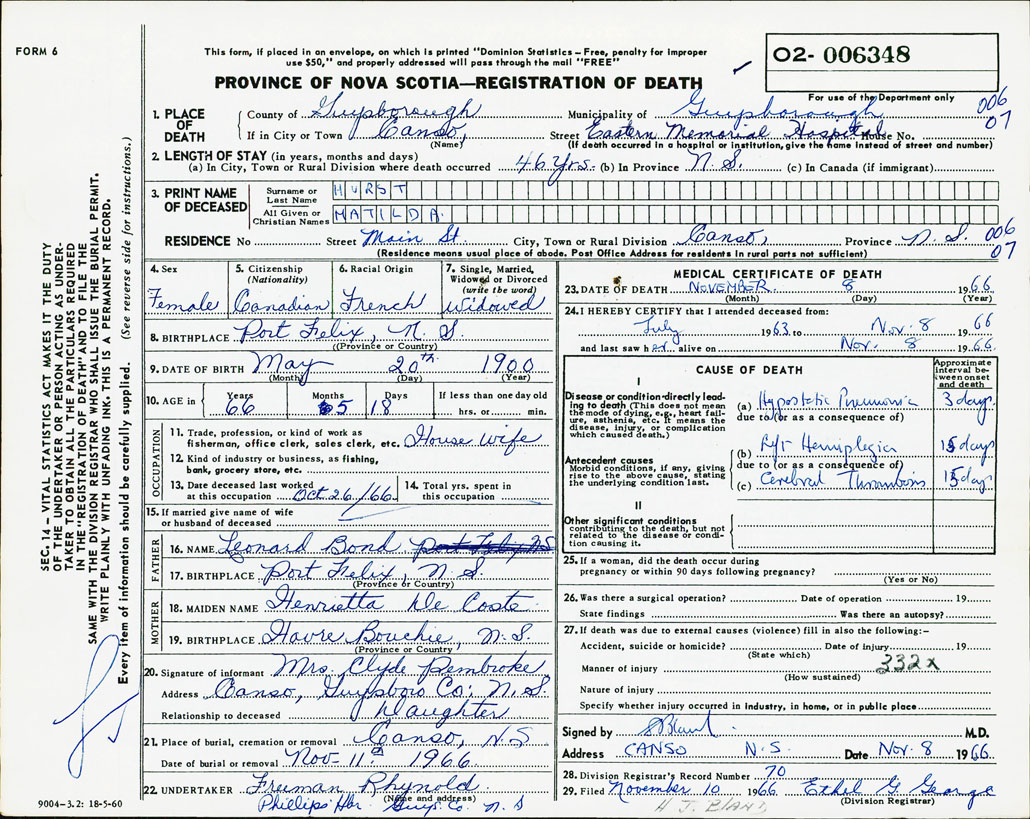 FORM 6
This form, if placed in an envelope, on which is printed "Dominion Statistics – Free, penalty for improper
use $50," and properly addressed will pass through the mail "FREE"
PROVINCE OF NOVA SCOTIA—REGISTRATION OF DEATH
02- 006348
For use of the Department only
SEC. 14 – VITAL STATISTICS ACT MAKES IT THE DUTY
OF THE UNDERTAKER OR PERSON ACTING AS UNDER-
TAKER TO OBTAIN ALL THE PARTICULARS REQUIRED
IN THE "REGISTRATION OF DEATH" AND TO FILE THE
SAME WITH THE DIVISION REGISTRAR WHO SHALL ISSUE THE BURIAL PERMIT.
WRITE PLAINLY WITH UNFADING INK. THIS IS A PERMANENT RECORD.
Every item of information should be carefully supplied. (See reverse side for instructions.)
1. PLACE OF DEATH
County of Guysborough Municipality of Guysborough 006
If in City or Town Canso, Street Eastern Memorial Hospital House No. 07
(Name) (If death occurred in a hospital or institution, give the name instead of street and number)
2. LENGTH OF STAY (in years, months and days)
(a) In City, Town or Rural Division where death occurred 46 yrs. (b) In Province N. S. (c) In Canada (if immigrant)
3. PRINT NAME OF DECEASED
Surname or Last Name HURST
All Given or Christian Names MATILDA
RESIDENCE No Street Main St. City, Town or Rural Division Canso, Province N. S. 006 07
(Residence means usual place of abode. Post Office Address for residents in rural parts not sufficient)
4. Sex
Female
5. Citizenship (Nationality)
Canadian
6. Racial Origin
French
7. Single, Married, Widowed or Divorced (write the word)
Widowed
8. BIRTHPLACE Port Felix, N. S.
(Province or Country)
9. DATE OF BIRTH May 20th 1900
(Month) (Day) (Year)
10. AGE in Years 66 Months 5 Days 18 If less than one day old hrs. or min.
OCCUPATION
11. Trade, profession, or kind of work as
fisherman, office clerk, sales clerk, etc. House wife
12. Kind of industry or business, as fishing,
bank, grocery store, etc.
13. Date deceased last worked
at this occupation Oct 26/66
14. Total yrs. spent in
this occupation
15. If married give name of wife
or husband of deceased
FATHER
16. NAME Leonard Bond Port Felix, N.S.
17. BIRTHPLACE Port Felix, N. S.
(Province or Country)
MOTHER
18. MAIDEN NAME Henrietta De Coste
19. BIRTHPLACE Havre Bouchie, N. S.
(Province or Country)
20. Signature of informant Mrs. Clyde Pembroke
Address Canso, Guysboro Co; N. S.
Relationship to deceased Daughter
21. Place of burial, cremation or removal Canso, N. S
Date of burial or removal Nov- 11th 1966
22. UNDERTAKER Freeman Rhynold
(Name and address)
Phillips Hbr. Guys. Co. N. S
9004–3.2: 18-5-60
MEDICAL CERTIFICATE OF DEATH
23. DATE OF DEATH NOVEMBER 8 1966
(Month) (Day) (Year)
24. I HEREBY CERTIFY that I attended deceased from:
July 1963 to Nov. 8 66
and last saw her alive on Nov. 8 1966
CAUSE OF DEATH
Approximate interval between onset and death
I
Disease or condition directly leading to death (This does not mean
the mode of dying, e.g., heart failure, asthenia, etc. It means the
disease, injury, or complication which caused death.)
(a) Hypostatic Pneumonia 3 days
due to (or as a consequence of)
Antecedent causes
Morbid conditions, if any, giving
rise to the above cause, stating
the underlying condition last.
(b) Hemiplegia 15 days
due to (or as a consequence of)
(c) Cerebral Thrombosis 15 days
II
Other significant conditions
contributing to the death, but not
related to the disease or condition causing it.
25. If a woman, did the death occur during
pregnancy or within 90 days following pregnancy?
(Yes or No)
26. Was there a surgical operation? Date of operation 19
State findings Was there an autopsy?
27. If death was due to external causes (violence) fill in also the following:–
Accident, suicide or homicide? Date of injury 19
(State which)
Manner of injury 332x
(How sustained)
Nature of injury
Specify whether injury occurred in industry, in home, or in public place
Signed by M.D.
Address CANSO N. S. Date Nov. 8 1966
28. Division Registrar's Record Number 70
29. Filed November 10 1966 Ethel G George
(Division Registrar)